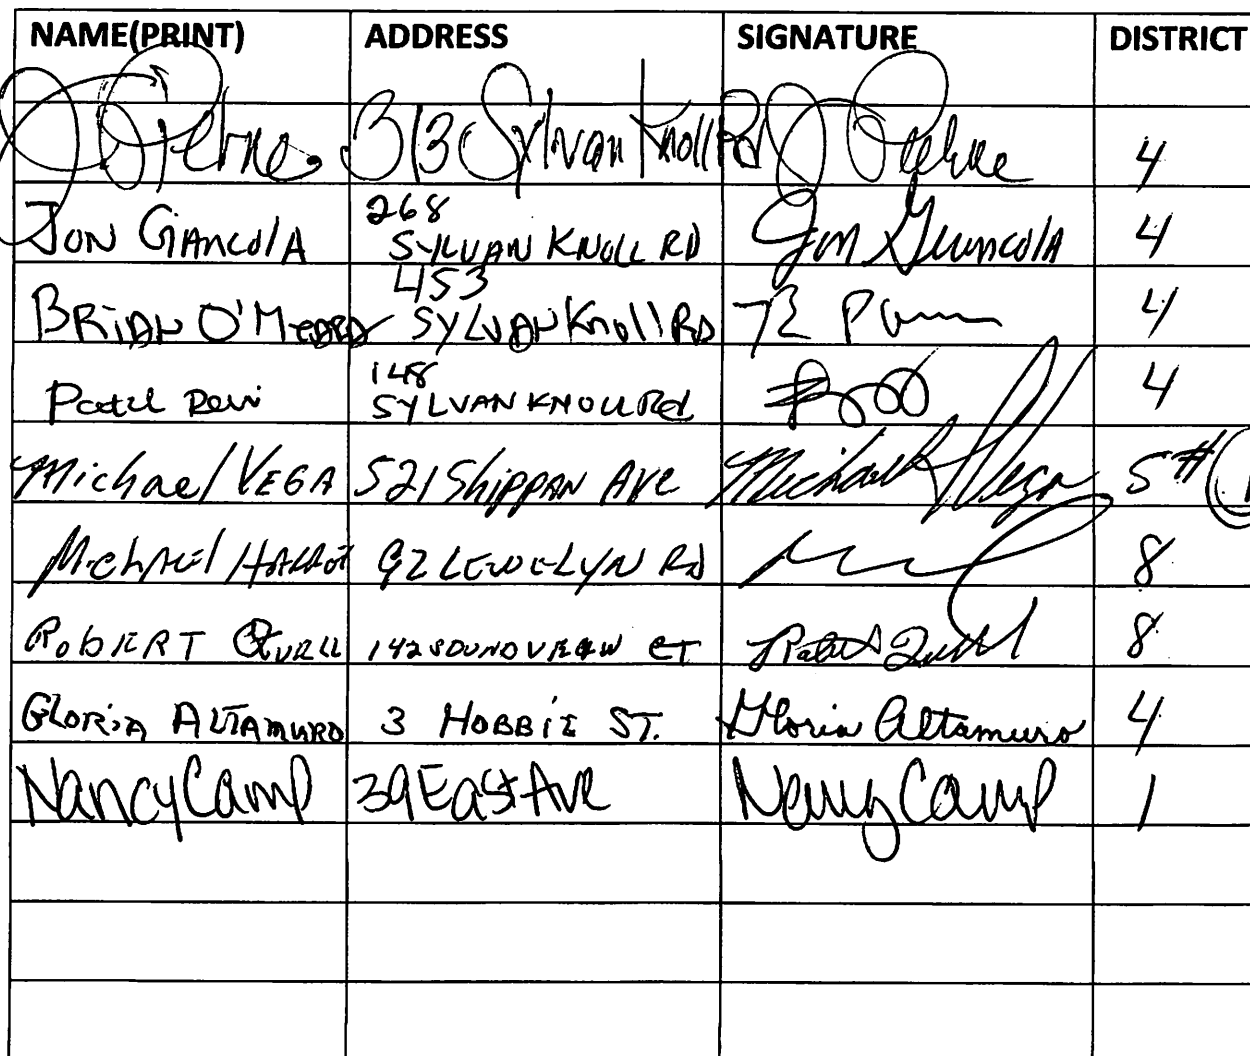 NAME(PRINT) ADDRESS SIGNATURE DISTRICT
313 Sylvan Knoll Rd 4
268
JON GIANCOLA SYLVAN KNOLL RD Jon Giancola 4
453
BRIAN O'MEARA SYLVAN Knoll RD 4
148
Patel Devi SYLVAN KNOLL Rd 4
Michael VEGA 521 Shippan Ave Michael Vega 5 #
Michael 92 LEWELYN RD 8
ROBERT 142 SOUNDVIEW CT Robert 8
GLORIA ALTAMURO 3 HOBBIE ST. Gloria Altamuro 4
Nancy Camp 39 East Ave Nancy Camp 1